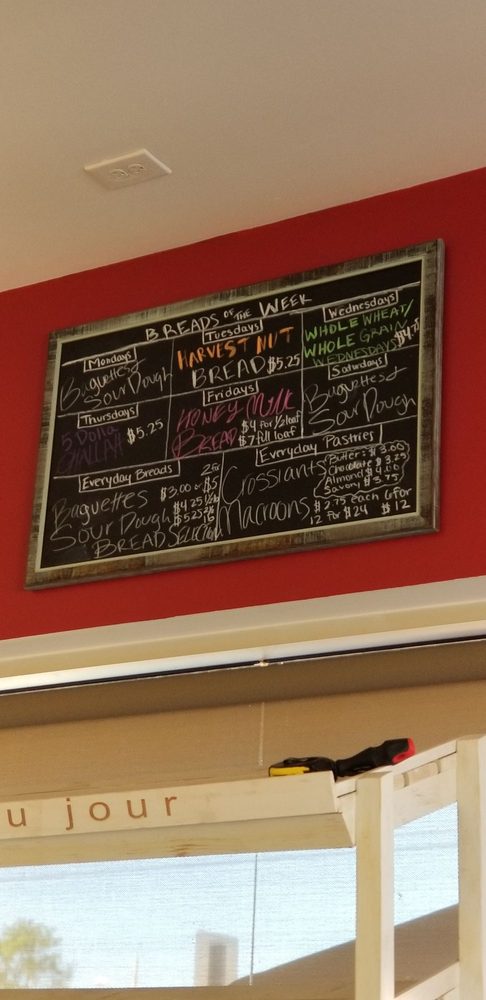 BREADS OF THE WEEK
Mondays
Baguettes &
Sour Dough
Tuesdays
HARVEST NUT
BREAD $5.25
Wednesdays
WHOLE WHEAT/
WHOLE GRAIN
WEDNESDAYS
Thursdays
$5.25
Fridays
HONEY MILK
BREAD
$4 for 1/2 loaf
$7 full loaf
Saturdays
Baguettes &
Sour Dough
Everyday Breads
Baguettes $3.00 or 2 for $5
Sour Dough
BREAD
Everyday Pastries
Crossiants
Butter: $3.00
Chocolate $3.25
Almond $4.00
Savory $3.75
Macroons
$2.75 each 6 for $12
12 for $24
u jour